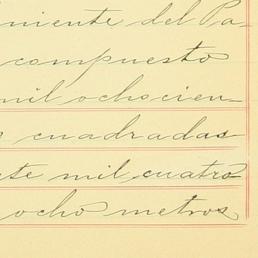 niente del Pa-
compuesto
mil ochocien-
s cuadradas
ete mil cuatro
ocho metros